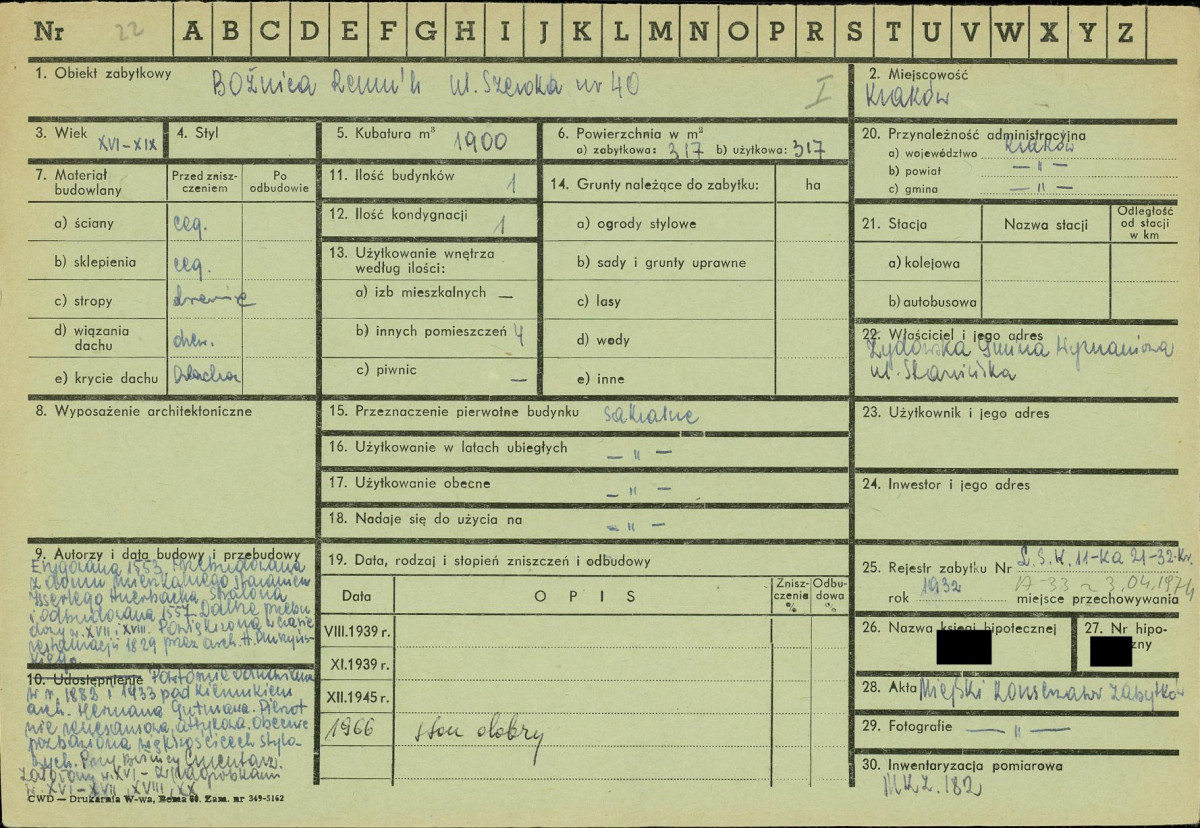 Nr 22 A B C D E F G H I J K L M N O P R S T U V W X Y Z
1. Obiekt zabytkowy BOŻnica Remu'h ul. Szeroka nr 40 I
2. Miejscowość
Kraków
3. Wiek XVI-XIX
4. Styl
5. Kubatura m³ 1900
6. Powierzchnia w m²
a) zabytkowa: 317 b) użytkowa: 317
20. Przynależność administracyjna
a) województwo Kraków
b) powiat — " —
c) gmina — " —
7. Materiał budowlany
Przed zniszczeniem
Po odbudowie
a) ściany ceg.
b) sklepienia ceg.
c) stropy drewnię
d) wiązania dachu drew.
e) krycie dachu blacha
11. Ilość budynków 1
12. Ilość kondygnacji 1
13. Użytkowanie wnętrza
według ilości:
a) izb mieszkalnych —
b) innych pomieszczeń 4
c) piwnic —
14. Grunty należące do zabytku: ha
a) ogrody stylowe
b) sady i grunty uprawne
c) lasy
d) wody
e) inne
21. Stacja Nazwa stacji
Odległość
od stacji
w km
a) kolejowa
b) autobusowa
22. Właściciel i jego adres
Żydowska Gmina Wyznaniowa
ul. Skawińska
8. Wyposażenie architektoniczne
15. Przeznaczenie pierwotne budynku sakralne
16. Użytkowanie w latach ubiegłych — " —
17. Użytkowanie obecne — " —
18. Nadaje się do użycia na — " —
23. Użytkownik i jego adres
24. Inwestor i jego adres
9. Autorzy i data budowy i przebudowy
Erygowana 1553. Przebudowana
z domu mieszkalnego staraniem
Isserlego Auerbacha, spalona
i odbudowana 1557. Dalsze przebu
dowy w XVII i XVIII. Powiększona w czasie
restauracji 1829 przez arch. H.
10. Udostępnienie Ponownie odnowiona
w r. 1883 i 1933 pod kierunkiem
arch. Hermana Gutmana. Pierwot
nie renesansowa, attykowa. Obecnie
pozbawiona większości cech stylo-
wych. Przy Bożnicy Cmentarz.
założony w XVI - z nagrobkami
w. XVI - XVII, XVIII, XX
19. Data, rodzaj i stopień zniszczeń i odbudowy
Data OPIS
Zniszczenia %
Odbudowa %
VIII.1939 r.
XI.1939 r.
XII.1945 r.
1966 stan dobry
25. Rejestr zabytku Nr L.S.K. 11-Ka 21-32-Kr.
A-33 z 3.04.1974
rok 1932 miejsce przechowywania
26. Nazwa księgi hipotecznej
27. Nr hipo-
zny
28. Akta Miejski Konserwator Zabytków
29. Fotografie — " —
30. Inwentaryzacja pomiarowa
MKZ. 182
CWD — Drukarnia W-wa, Bema 60. Zam. nr 349-5162